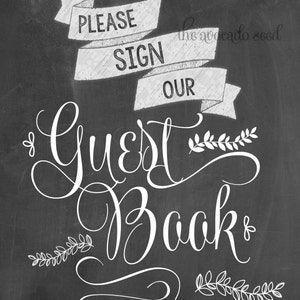 the avocado seed
PLEASE
SIGN
OUR
Guest
Book